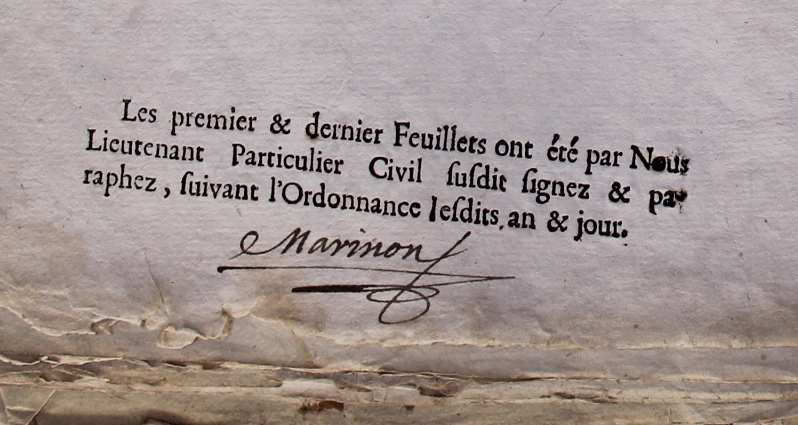 Les premier & dernier Feuillets ont été par Nous
Lieutenant Particulier Civil ſuſdit ſignez & pa-
raphez, ſuivant l'Ordonnance leſdits an & jour.
Marinon